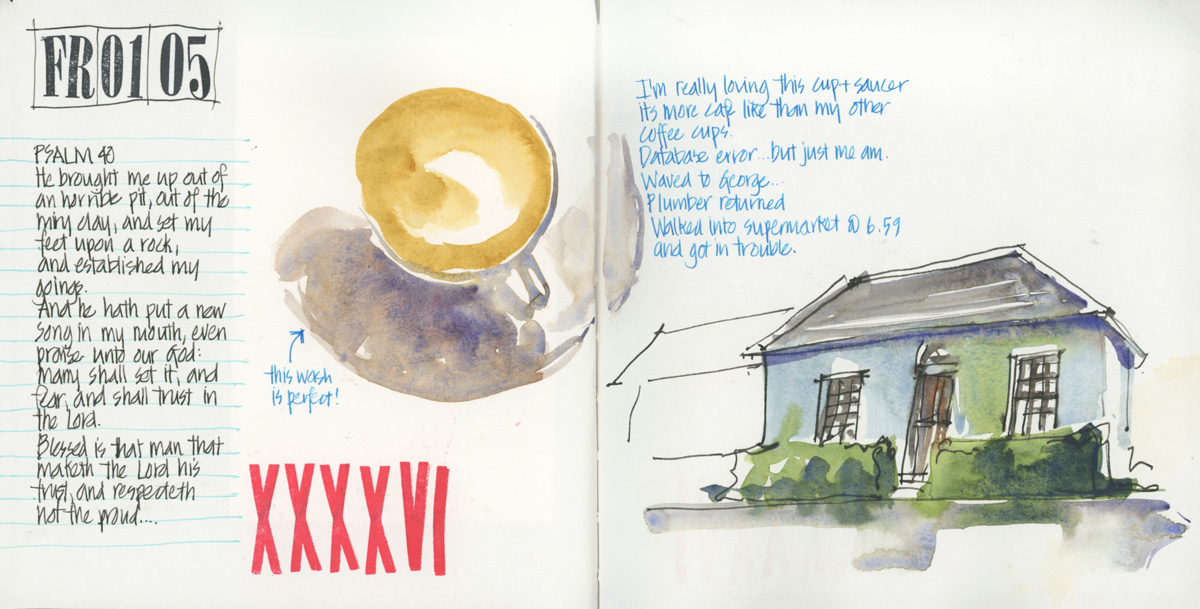 FR 01 05
PSALM 40
He brought me up out of
an horrible pit, out of the
miry clay, and set my
feet upon a rock,
and established my
goings.
And he hath put a new
song in my mouth, even
praise unto our God:
Many shall see it, and
fear, and shall trust in
the Lord.
Blessed is that man that
maketh the Lord his
trust, and respecteth
not the proud....
this wash
is perfect!
XXXXVI
I'm really loving this cup + saucer
its more cafe like than my other
coffee cups.
Database error... but just me am.
Waved to George...
Plumber returned
Walked into supermarket @ 6.59
and got in trouble.